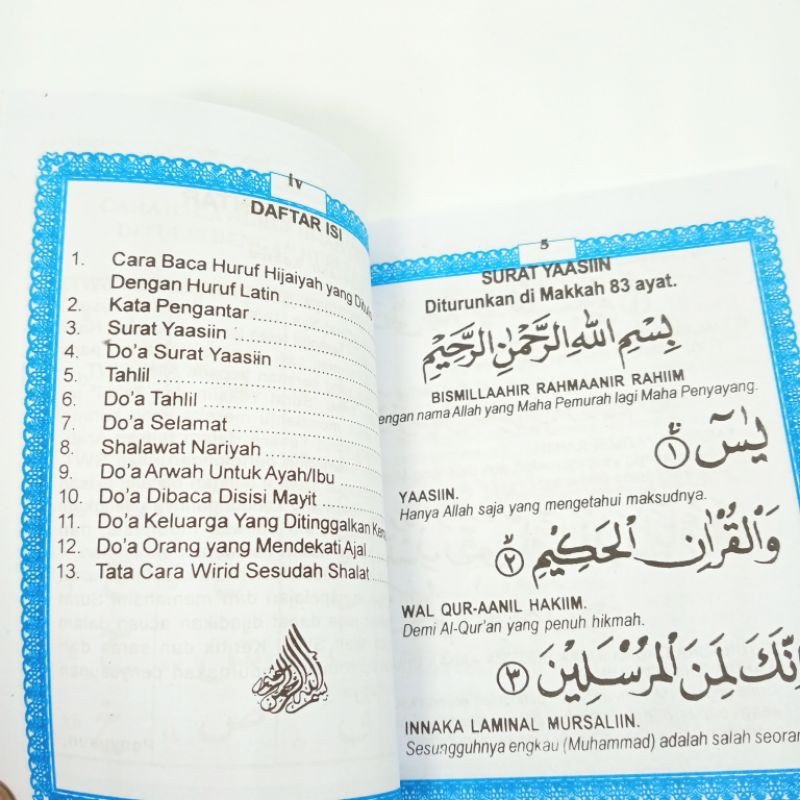 iv
DAFTAR ISI
1. Cara Baca Huruf Hijaiyah yang
Dengan Huruf Latin
2. Kata Pengantar
3. Surat Yaasiin
4. Do'a Surat Yaasiin
5. Tahlil
6. Do'a Tahlil
7. Do'a Selamat
8. Shalawat Nariyah
9. Do'a Arwah Untuk Ayah/Ibu
10. Do'a Dibaca Disisi Mayit
11. Do'a Keluarga Yang Ditinggalkan
12. Do'a Orang yang Mendekati Ajal
13. Tata Cara Wirid Sesudah Shalat
5
SURAT YAASIIN
Diturunkan di Makkah 83 ayat.
بِسْمِ اللهِ الرَّحْمٰنِ الرَّحِيْمِ
BISMILLAAHIR RAHMAANIR RAHIIM
engan nama Allah yang Maha Pemurah lagi Maha Penyayang.
يٰسٓ ۝١
YAASIIN.
Hanya Allah saja yang mengetahui maksudnya.
وَالْقُرْاٰنِ الْحَكِيْمِ ۝٢
WAL QUR-AANIL HAKIIM.
Demi Al-Qur'an yang penuh hikmah.
اِنَّكَ لَمِنَ الْمُرْسَلِيْنَ ۝٣
INNAKA LAMINAL MURSALIIN.
Sesungguhnya engkau (Muhammad) adalah salah seoran